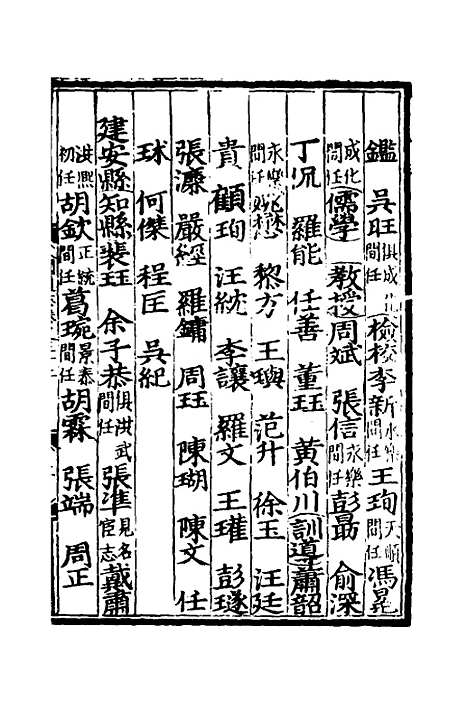 鑑 吳旺俱成化間任檢校李新永樂間任王珣天順間任馮晃
成化間任儒學教授周斌 張信永樂間任彭勗 俞深
丁況 羅能 任善 董珏 黃伯川訓導蕭韶
永樂間任 黎方 王璵 范升 徐玉 汪廷
貴 顧珣 汪統 李讓 羅文 王瓘 彭璲
張濂 嚴經 羅鏞 周珏 陳瑚 陳文 任
球 何傑 程匡 吳紀
建安縣知縣裴珏 余子恭俱洪武間任張準見名宦志戴肅
洪熙初任胡欽正統間任葛琬景泰間任胡霖 張端 周正